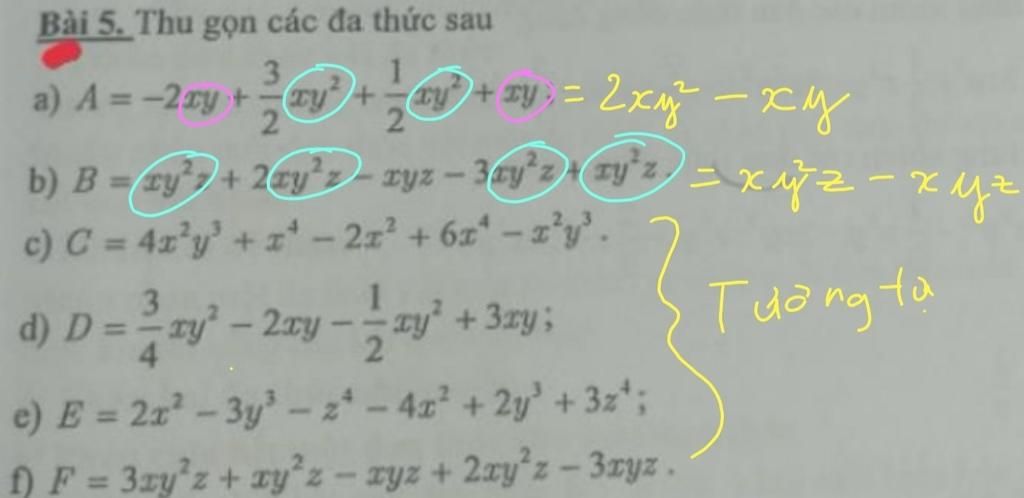 Bài 5. Thu gọn các đa thức sau
a) A = -2xy + 3/2 xy² + 1/2 xy² + xy; = 2xy² - xy
b) B = xy²z + 2xy²z - xyz - 3xy²z + xy²z. = xy²z - xyz
c) C = 4x²y³ + x⁴ - 2x² + 6x⁴ - x²y³.
d) D = 3/4 xy² - 2xy - 1/2 xy² + 3xy;
Tương tự
e) E = 2x² - 3y³ - z⁴ - 4x² + 2y³ + 3z⁴;
f) F = 3xy²z + xy²z - xyz + 2xy²z - 3xyz.